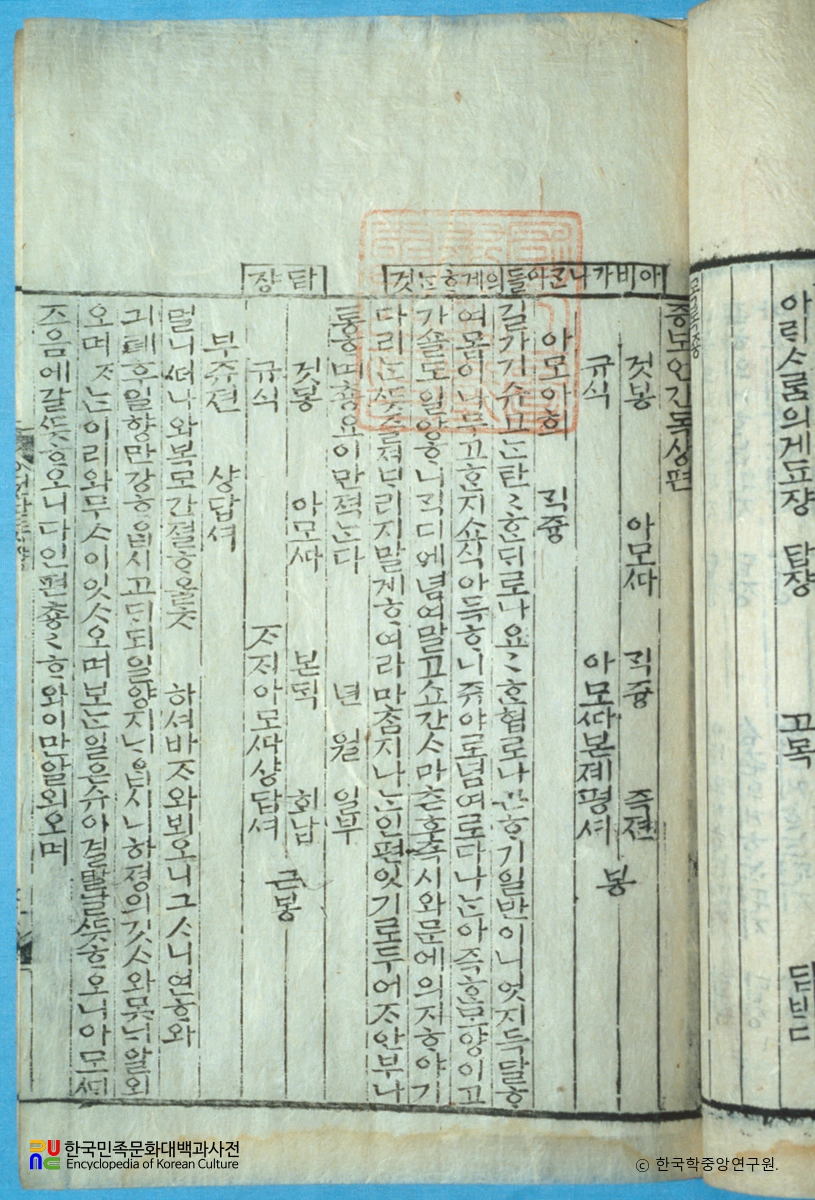 목록종
답쟝 고목
아비가나간아들의게ᄒᆞᄂᆞᆫ것
증보언간독샹편
것봉 아모ᄯᅡ ᄌᆡ즁 즉젼
규식 아모ᄯᅡ본졔평셔 봉
아모아희 ᄌᆡ즁
길가기슈고ᄂᆞᆫ탄〻ᄒᆞᆫᄃᆡ로나요〻ᄒᆞᆫ협로나ᄀᆞᆫᄒᆞ기일반이니엇지득달ᄒᆞ
여몸이나무고ᄒᆞᆫ지쇼식아득ᄒᆞ니쥬야로념여로다나ᄂᆞᆫ아즉ᄒᆞᆫ모양이고
가솔도일양ᄒᆞ니ᄀᆡᆨ디에념여말고쇼간ᄉᆞ마츤후즉시와문에의지ᄒᆞ야기
다리ᄂᆞᆫᄯᅳᆺ을져ᄇᆞ리지말게ᄒᆞ여라마ᄎᆞᆷ지나ᄂᆞᆫ인편잇기로두어ᄌᆞ안부나
통ᄒᆞ며총요이만젹ᄂᆞᆫ다 년 월 일부
답쟝
것봉 아모ᄯᅡ 본ᄃᆡᆨ 회납
규식 ᄌᆞ지아모ᄯᅡ샹답셔 근봉
부쥬젼 샹답셔
멀니ᄯᅥ나와복모간졀ᄒᆞ올ᄎᆞ 하셔바ᄌᆞ와뵈오니그ᄉᆞ니연ᄒᆞ와
긔톄후일향만강ᄒᆞᄋᆞᆸ시고ᄃᆡᆨ되일양지ᄂᆡᄋᆞᆸ시니하졍의깃ᄉᆞ와못ᄂᆡ알외
오며ᄌᆞᄂᆞᆫ이리와무ᄉᆞ이잇ᄉᆞ오며보ᄂᆞᆫ일은슈이결말날ᄯᅳᆺᄒᆞ오니아모ᄶᅦ
즈음에갈ᄯᅳᆺᄒᆞ오니다인편총〻ᄒᆞ와이만알외오며
한국민족문화대백과사전
Encyclopedia of Korean Culture
© 한국학중앙연구원.